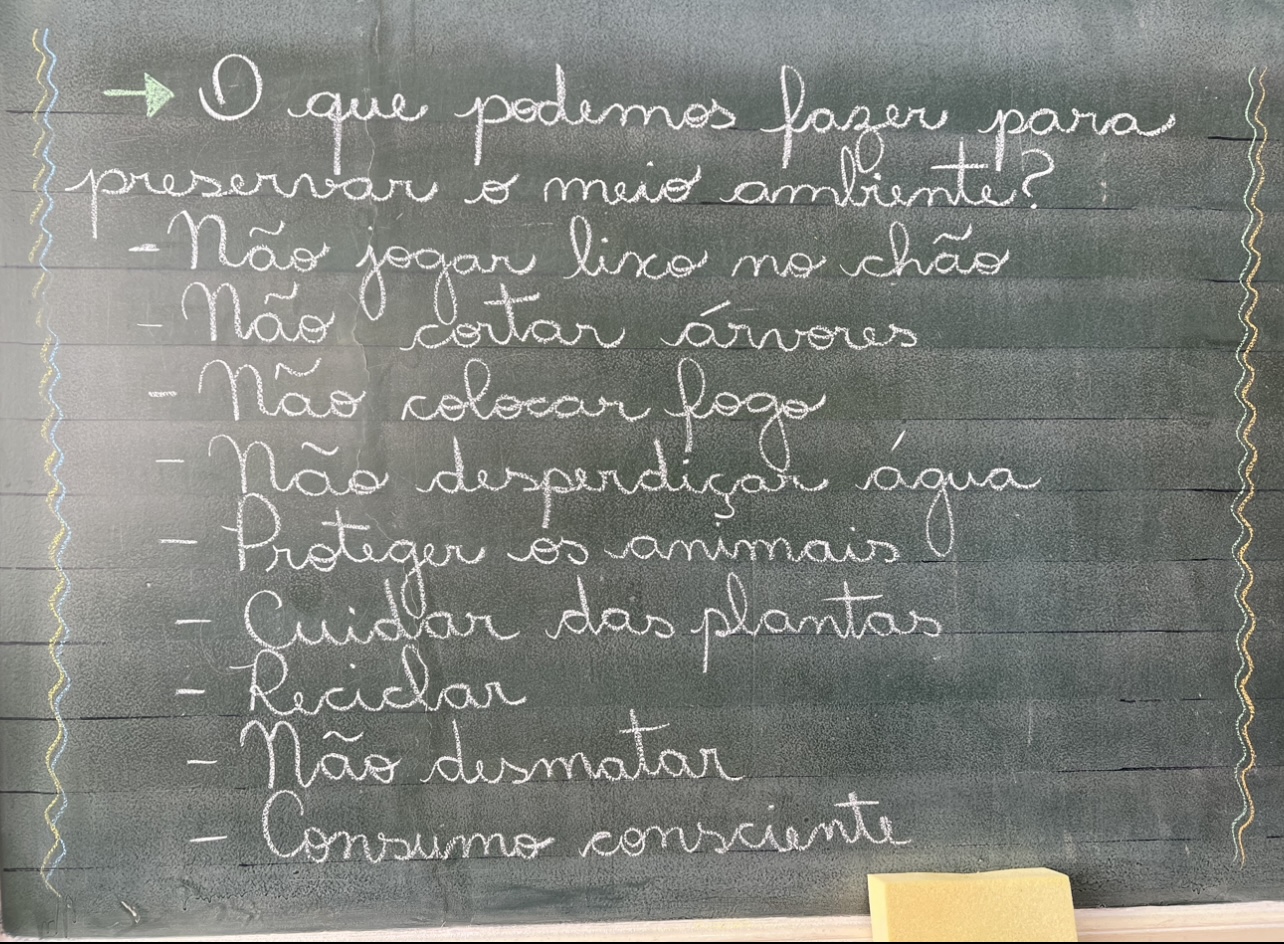 → O que podemos fazer para
preservar o meio ambiente?
- Não jogar lixo no chão
- Não cortar árvores
- Não colocar fogo
- Não desperdiçar água
- Proteger os animais
- Cuidar das plantas
- Reciclar
- Não desmatar
- Consumo consciente